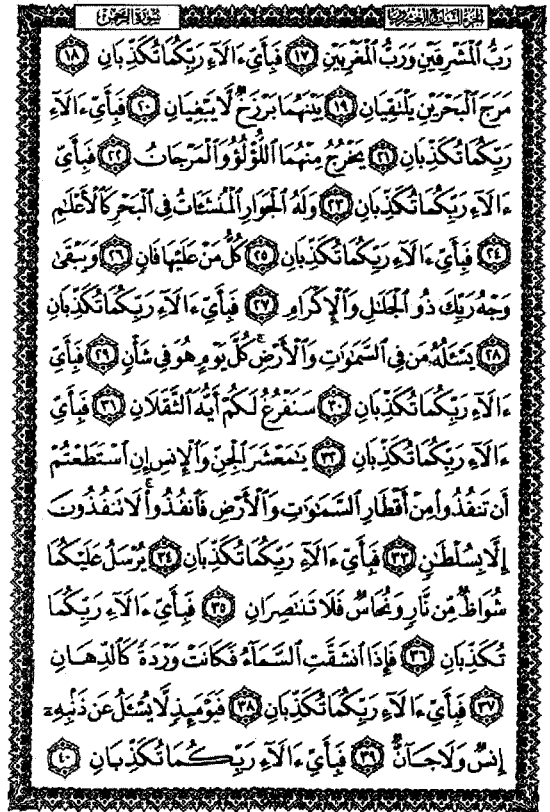 الجزء السابع والعشرون سورة الرحمن
رَبُّ ٱلْمَشْرِقَيْنِ وَرَبُّ ٱلْمَغْرِبَيْنِ ١٧ فَبِأَيِّ ءَالَآءِ رَبِّكُمَا تُكَذِّبَانِ ١٨
مَرَجَ ٱلْبَحْرَيْنِ يَلْتَقِيَانِ ١٩ بَيْنَهُمَا بَرْزَخٌ لَّا يَبْغِيَانِ ٢٠ فَبِأَيِّ ءَالَآءِ
رَبِّكُمَا تُكَذِّبَانِ ٢١ يَخْرُجُ مِنْهُمَا ٱللُّؤْلُؤُ وَٱلْمَرْجَانُ ٢٢ فَبِأَيِّ
ءَالَآءِ رَبِّكُمَا تُكَذِّبَانِ ٢٣ وَلَهُ ٱلْجَوَارِ ٱلْمُنشَـَٔاتُ فِي ٱلْبَحْرِ كَٱلْأَعْلَٰمِ
٢٤ فَبِأَيِّ ءَالَآءِ رَبِّكُمَا تُكَذِّبَانِ ٢٥ كُلُّ مَنْ عَلَيْهَا فَانٍ ٢٦ وَيَبْقَىٰ
وَجْهُ رَبِّكَ ذُو ٱلْجَلَٰلِ وَٱلْإِكْرَامِ ٢٧ فَبِأَيِّ ءَالَآءِ رَبِّكُمَا تُكَذِّبَانِ
٢٨ يَسْـَٔلُهُۥ مَن فِي ٱلسَّمَٰوَٰتِ وَٱلْأَرْضِ ۚ كُلَّ يَوْمٍ هُوَ فِي شَأْنٍ ٢٩ فَبِأَيِّ
ءَالَآءِ رَبِّكُمَا تُكَذِّبَانِ ٣٠ سَنَفْرُغُ لَكُمْ أَيُّهَ ٱلثَّقَلَانِ ٣١ فَبِأَيِّ
ءَالَآءِ رَبِّكُمَا تُكَذِّبَانِ ٣٢ يَٰمَعْشَرَ ٱلْجِنِّ وَٱلْإِنسِ إِنِ ٱسْتَطَعْتُمْ
أَن تَنفُذُوا۟ مِنْ أَقْطَارِ ٱلسَّمَٰوَٰتِ وَٱلْأَرْضِ فَٱنفُذُوا۟ ۚ لَا تَنفُذُونَ
إِلَّا بِسُلْطَٰنٍ ٣٣ فَبِأَيِّ ءَالَآءِ رَبِّكُمَا تُكَذِّبَانِ ٣٤ يُرْسَلُ عَلَيْكُمَا
شُوَاظٌ مِّن نَّارٍ وَنُحَاسٌ فَلَا تَنتَصِرَانِ ٣٥ فَبِأَيِّ ءَالَآءِ رَبِّكُمَا
تُكَذِّبَانِ ٣٦ فَإِذَا ٱنشَقَّتِ ٱلسَّمَآءُ فَكَانَتْ وَرْدَةً كَٱلدِّهَانِ
٣٧ فَبِأَيِّ ءَالَآءِ رَبِّكُمَا تُكَذِّبَانِ ٣٨ فَيَوْمَئِذٍ لَّا يُسْـَٔلُ عَن ذَنۢبِهِۦٓ
إِنسٌ وَلَا جَآنٌّ ٣٩ فَبِأَيِّ ءَالَآءِ رَبِّكُمَا تُكَذِّبَانِ ٤٠